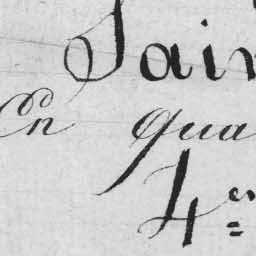 Sain
En qua
4=er